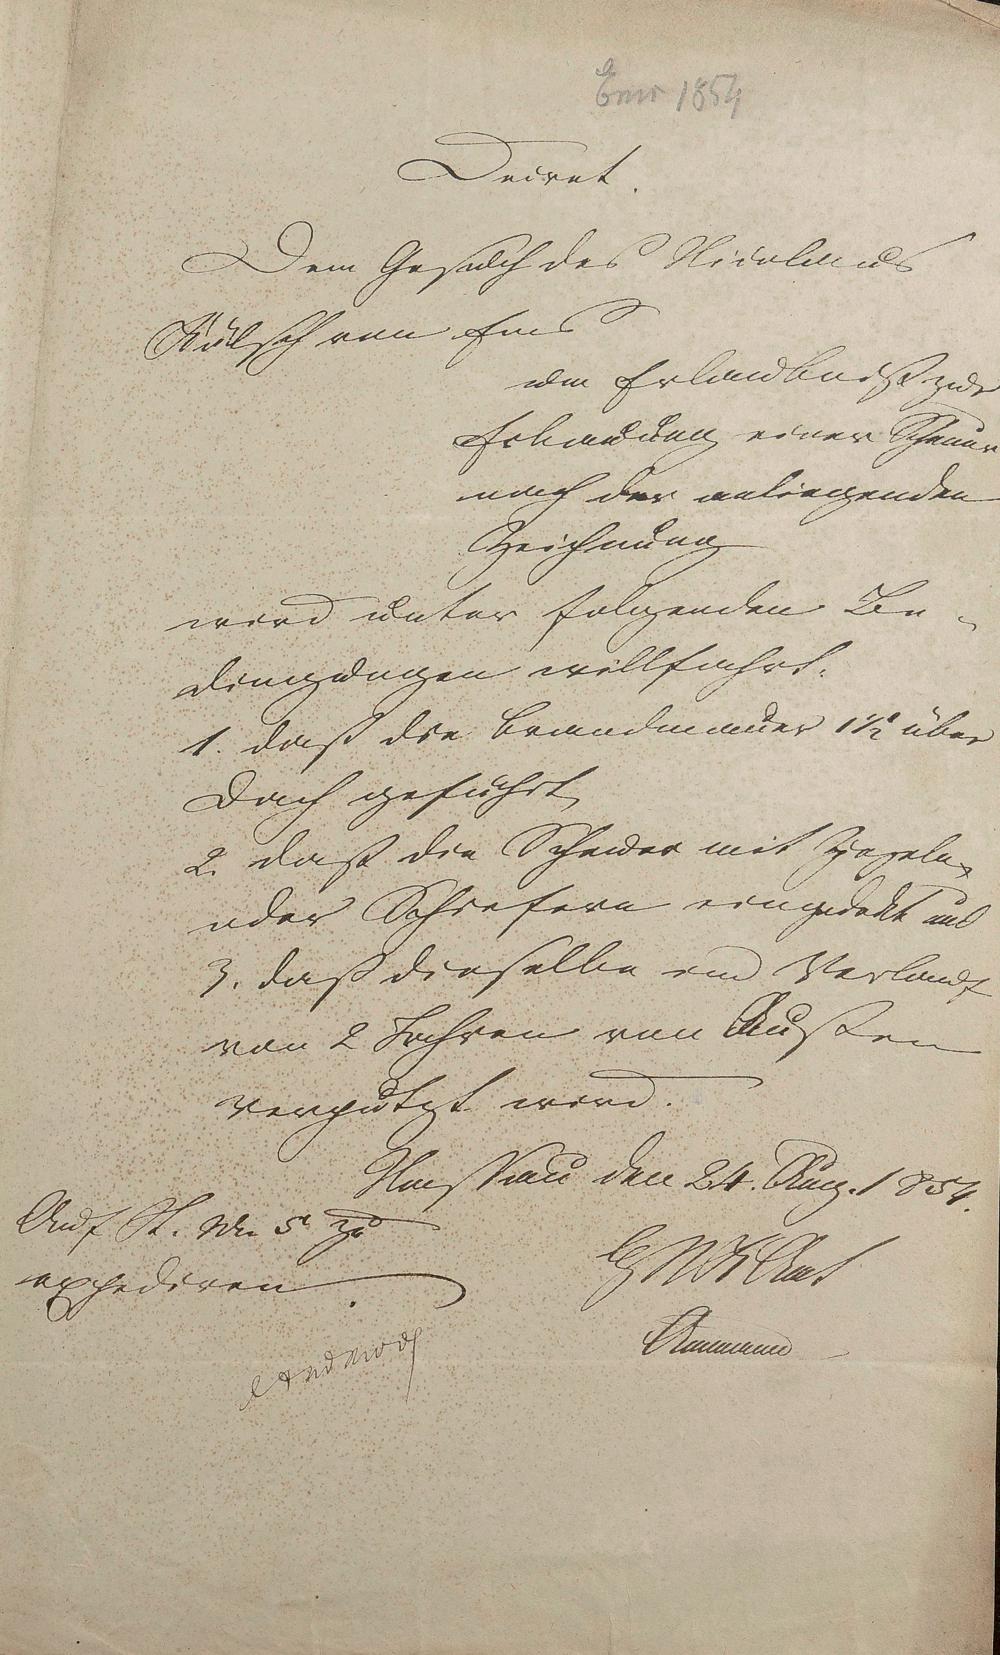 Ems 1854
Decret.
Dem Gesuch des Nicolaus
von Ems
um Erlaubniß zur
Erbauung einer Scheuer
nach der anliegenden
Zeichnung
wird unter folgenden Be-
dingungen willfahrt.
1. daß die Brandmauer 1½' über
Dach geführt,
2. daß die Scheuer mit Ziegeln
oder Schiefern eingedeckt und
3. daß dieselbe im Verlauf
von 2 Jahren von Außen
verputzt wird.
Nassau den 24. Aug. 1854.
Auf St. zu
expediren.
HzNHAmt